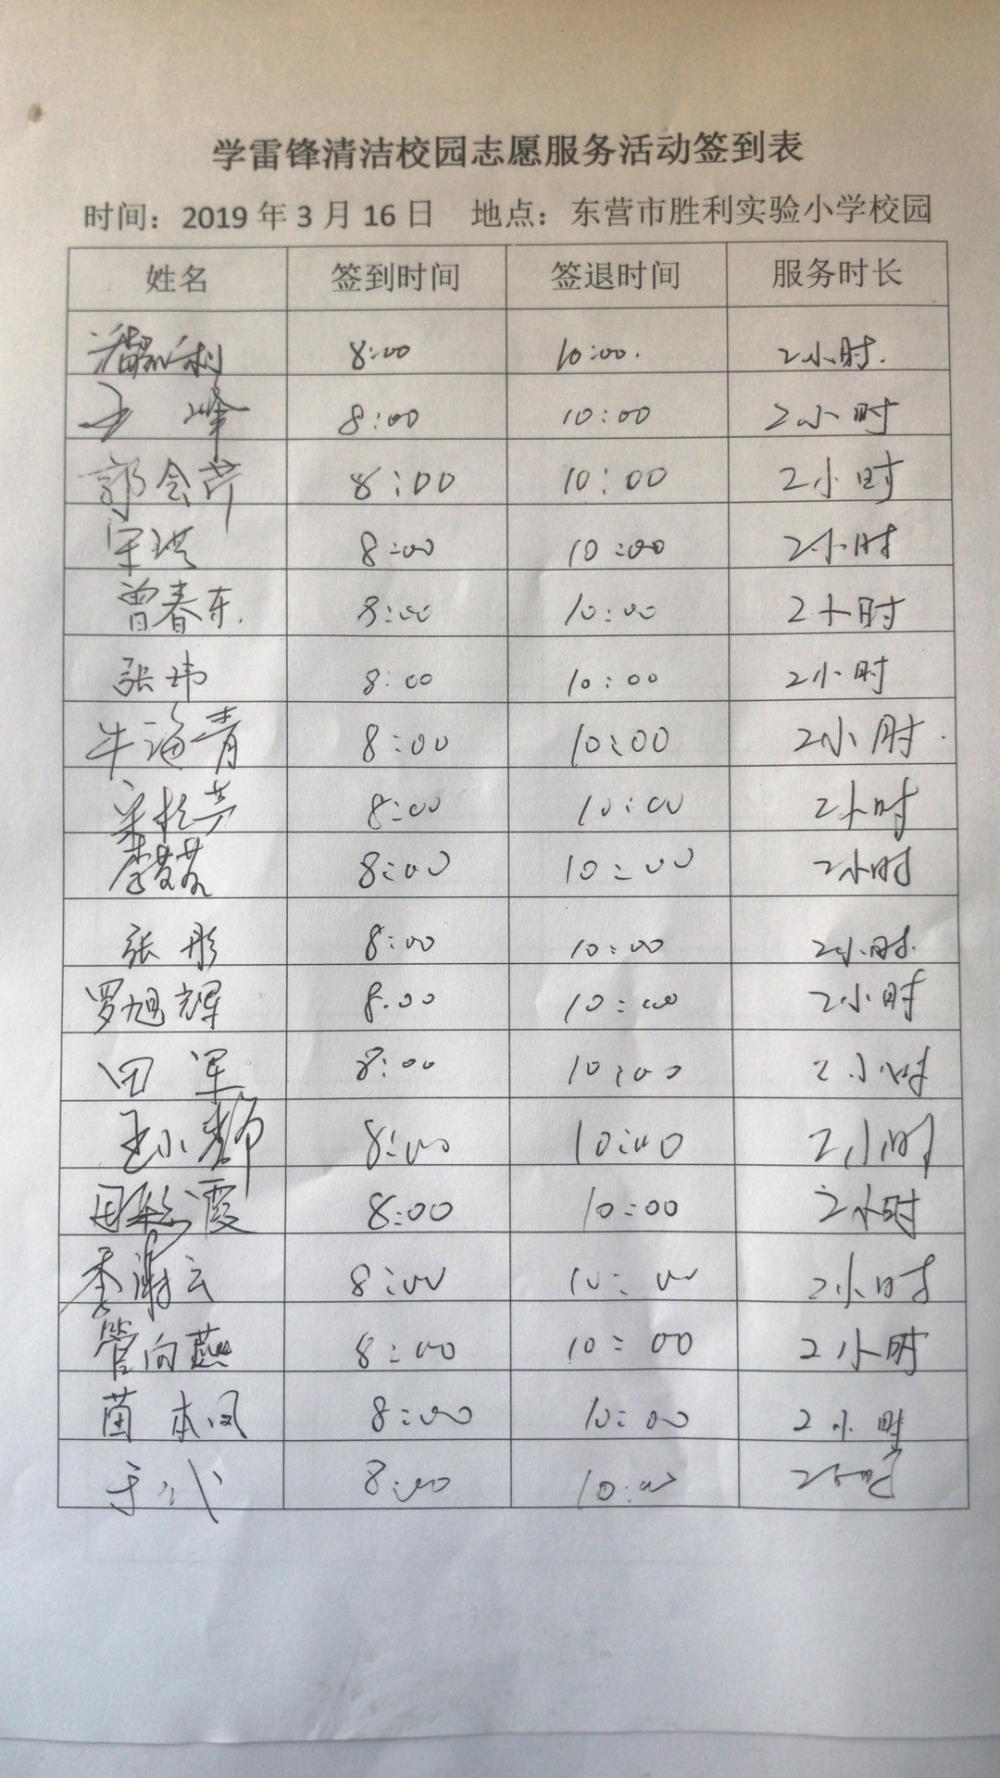 学雷锋清洁校园志愿服务活动签到表
时间：2019年3月16日 地点：东营市胜利实验小学校园
姓名 签到时间 签退时间 服务时长
8:00 10:00. 2小时.
王 峰 8:00 10:00 2小时
郭会芹 8:00 10:00 2小时
宋洪 8:00 10:00 2小时
曾春东. 8:00 10:00 2小时
张玮 8:00 10:00 2小时
牛海青 8:00 10:00 2小时.
8:00 10:00 2小时
李苗苗 8:00 10:00 2小时
张彤 8:00 10:00 2小时.
罗旭辉 8.00 10:00 2小时
田 军 8:00 10:00 2小时
王小 8:00 10:00 2小时
田 霞 8:00 10:00 2小时
李 云 8:00 10:00 2小时
管向燕 8:00 10:00 2小时
苗本凤 8:00 10:00 2小时
于 8:00 10:00 2小时